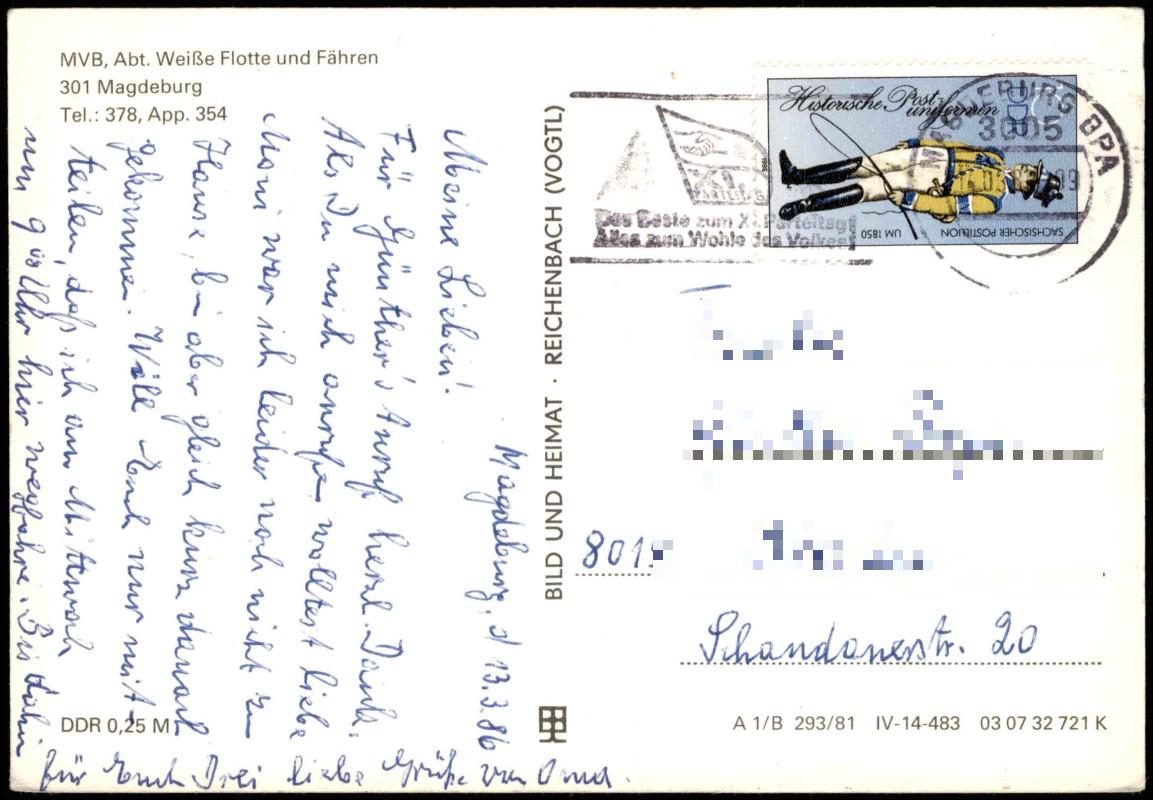 MVB, Abt. Weiße Flotte und Fähren
301 Magdeburg
Tel.: 378, App. 354
Magdeburg, d 13.3.86
Meine Lieben!
Für Günther's Anruf herzl. Dank.
Als Du mich anrufen wolltest liebe
Moni war ich leider noch nicht zu
Hause, bin aber gleich kurz danach
gekommen. Will Euch nur mit-
teilen, daß ich am Mittwoch
um 9 Uhr hier wegfahre. Bis dahin
für Euch Drei liebe Grüße von Oma.
DDR 0,25 M
BILD UND HEIMAT · REICHENBACH (VOGTL)
XI.
PARTEITAG
Das Beste zum XI. Parteitag!
Alles zum Wohle des Volkes!
Historische Post-
uniformen
DDR
1986
SÄCHSISCHER POSTILLION
UM 1850
MAGDEBURG BPA
3005
801
Schandauerstr. 20
A 1/B 293/81 IV-14-483 03 07 32 721 K